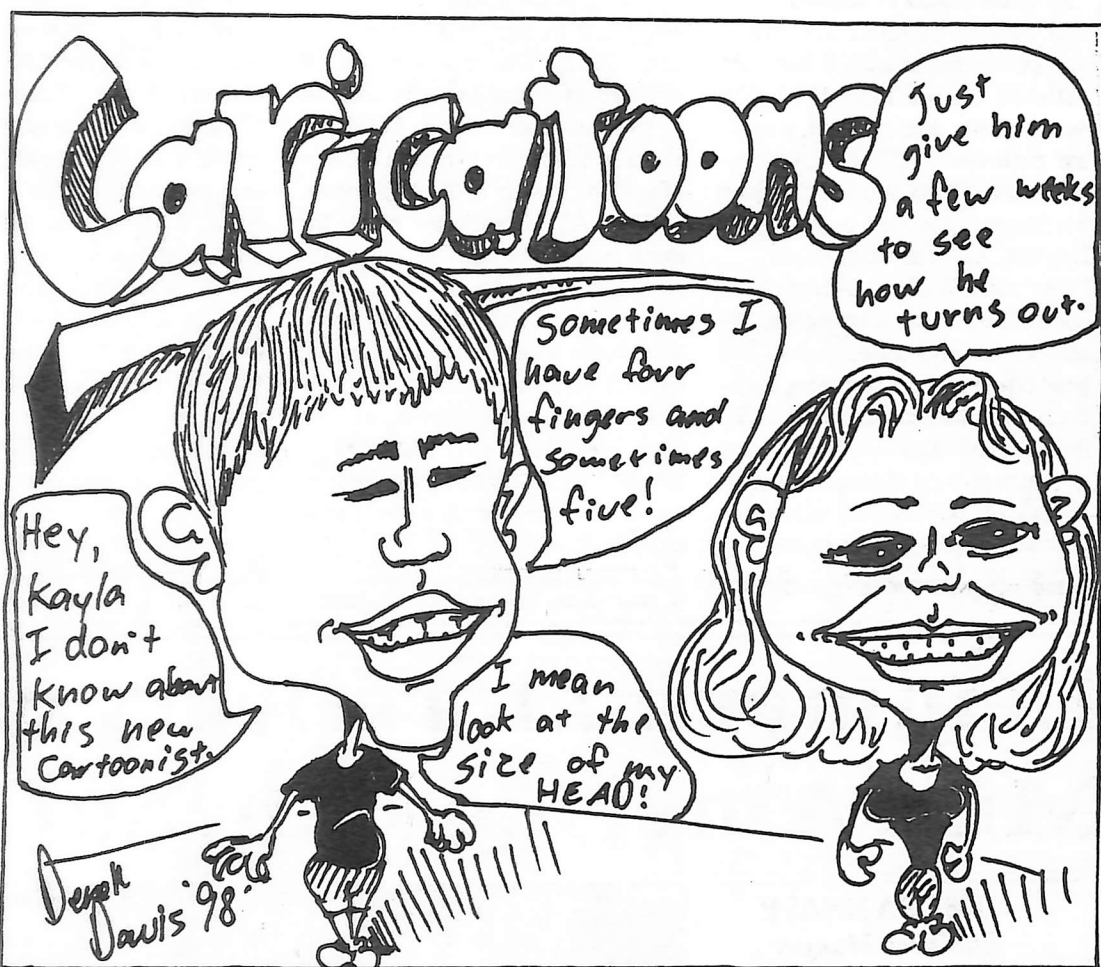 Caricatoons
Hey,
Kayla
I don't
know about
this new
cartoonist.
Sometimes I
have four
fingers and
sometimes
five!
I mean
look at the
size of my
HEAD!
Just
give him
a few weeks
to see
how he
turns out.
Derek
Davis '98